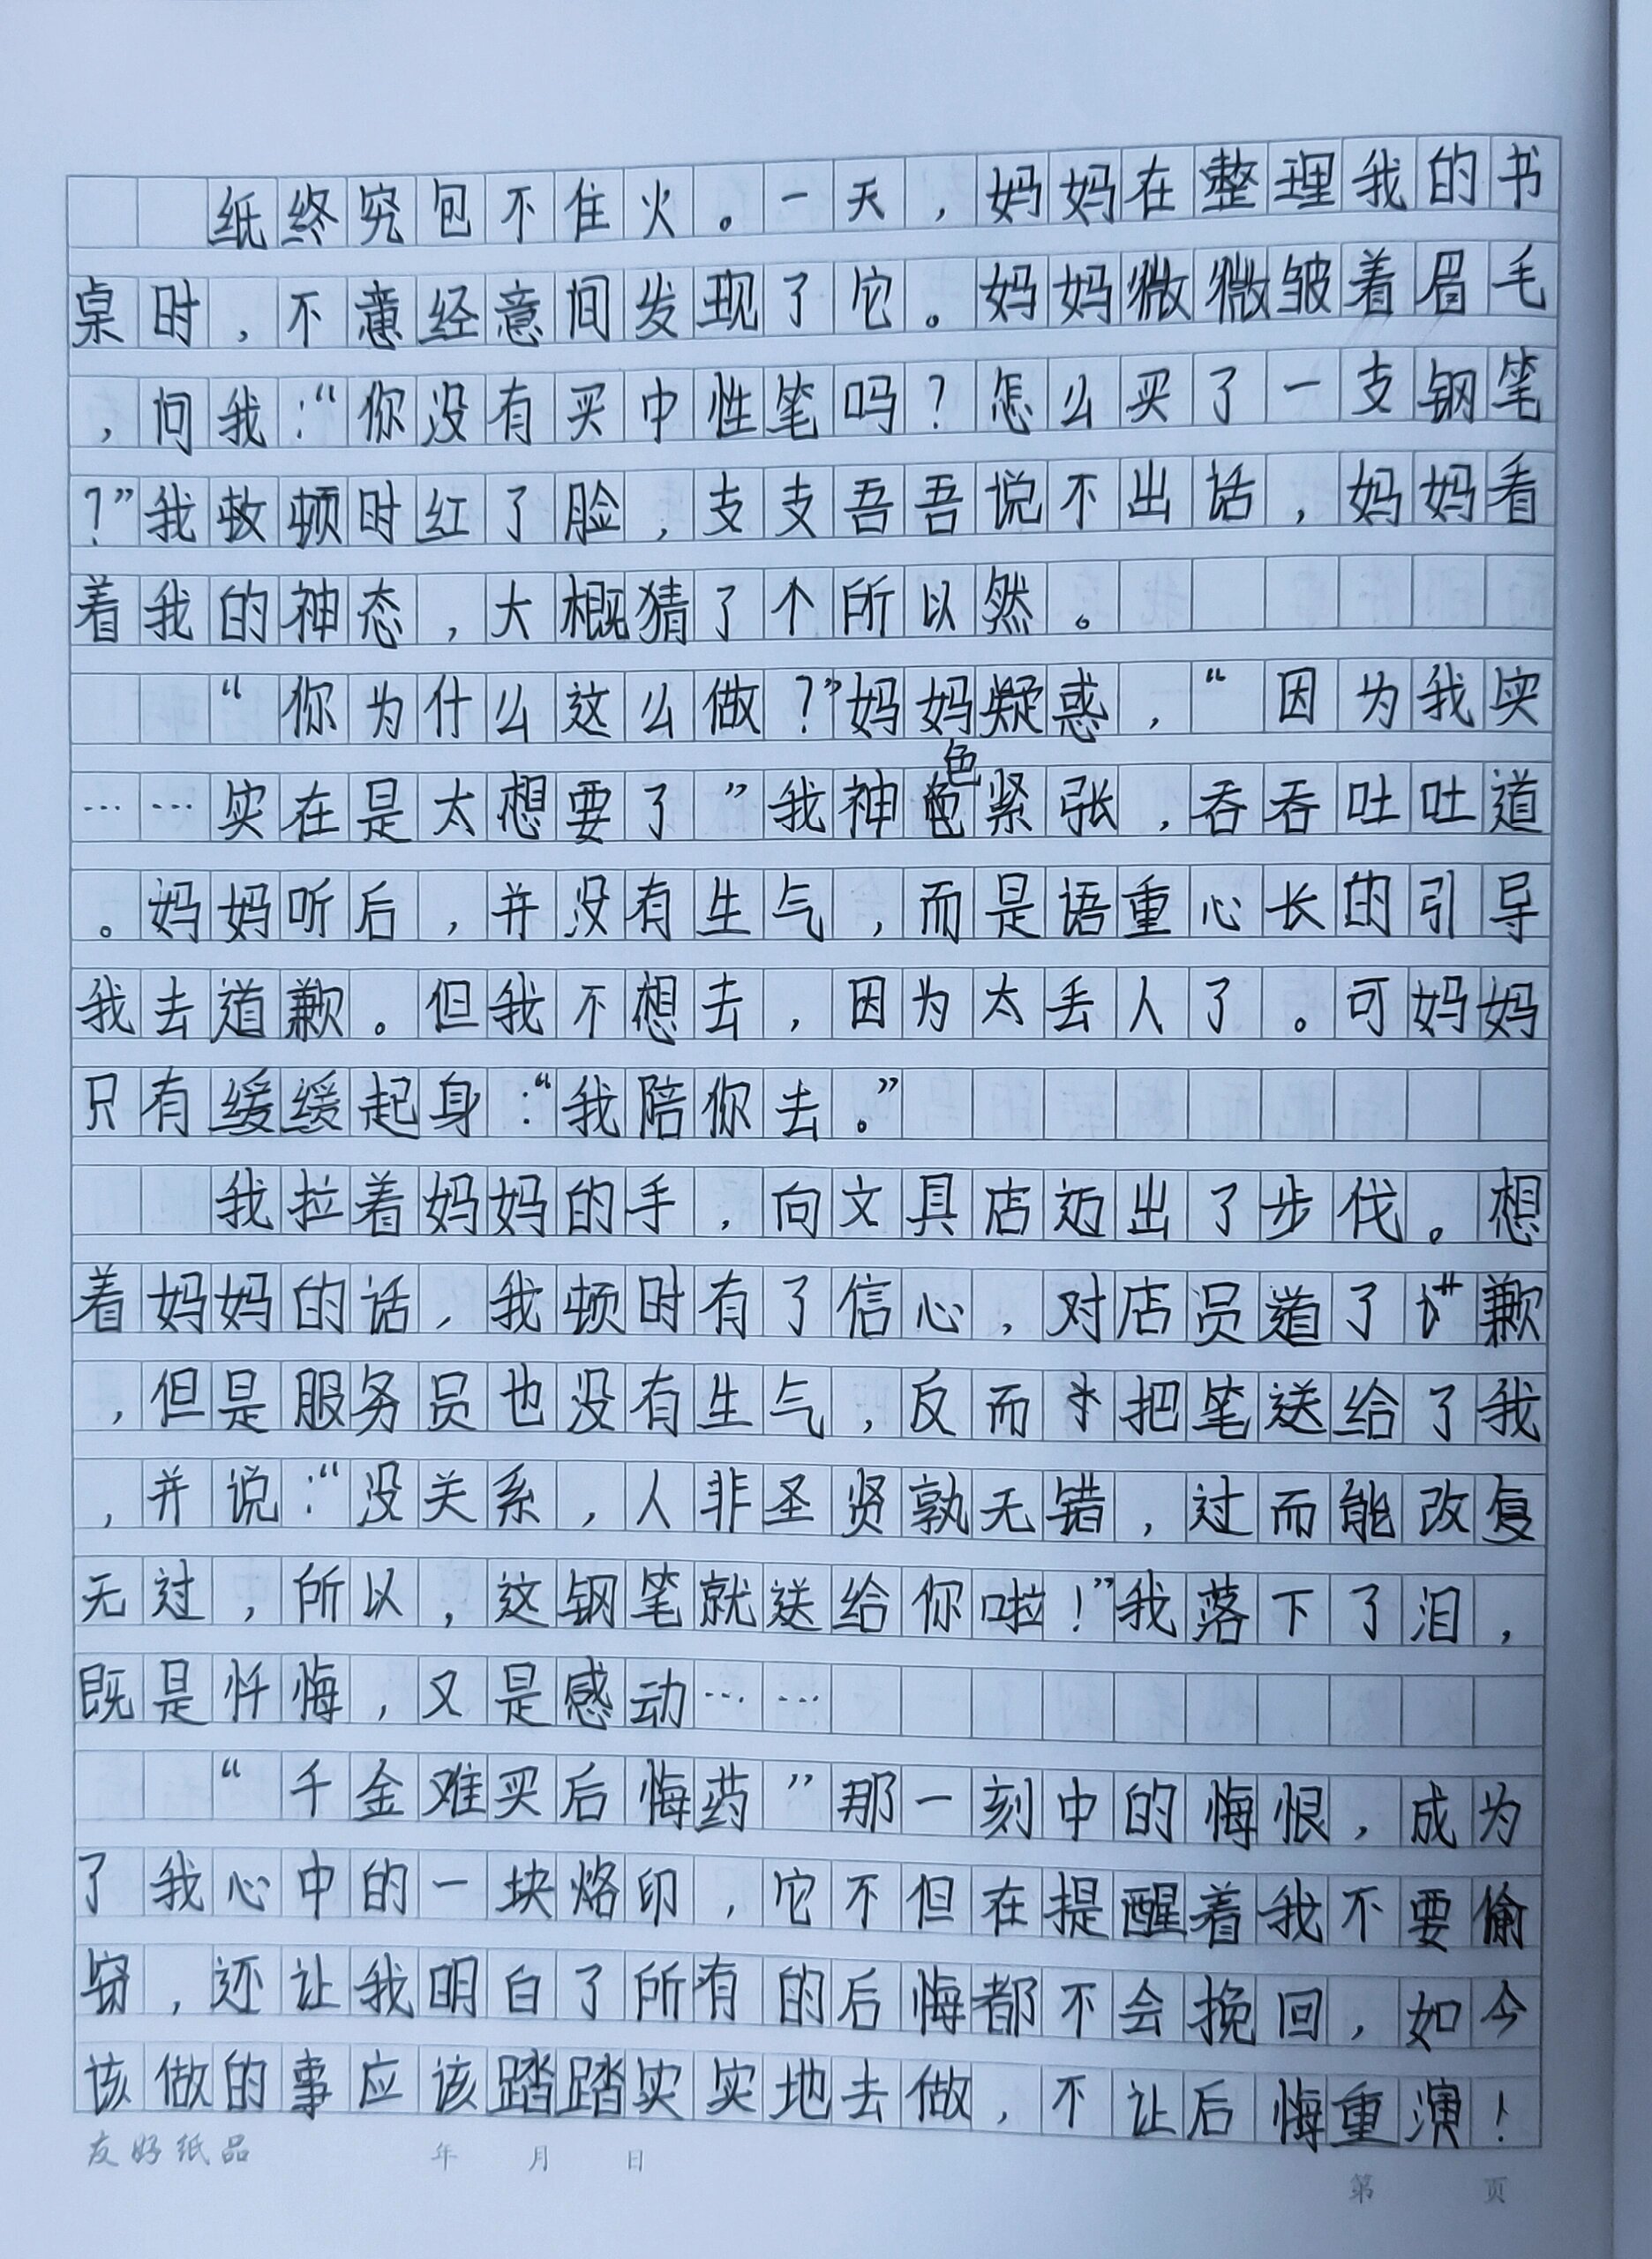 纸终究包不住火。一天，妈妈在整理我的书
桌时，不意经意间发现了它。妈妈微微皱着眉毛
，问我：“你没有买中性笔吗？怎么买了一支钢笔
？”我顿时红了脸，支支吾吾说不出话，妈妈看
着我的神态，大概猜了个所以然。
“你为什么这么做？”妈妈疑惑，“因为我实
……实在是太想要了”我神色紧张，吞吞吐吐道
。妈妈听后，并没有生气，而是语重心长的引导
我去道歉。但我不想去，因为太丢人了。可妈妈
只有缓缓起身：“我陪你去。”
我拉着妈妈的手，向文具店迈出了步伐。想
着妈妈的话，我顿时有了信心，对店员道了歉
，但是服务员也没有生气，反而把笔送给了我
，并说：“没关系，人非圣贤孰无错，过而能改复
无过，所以，这钢笔就送给你啦！”我落下了泪，
既是忏悔，又是感动……
“千金难买后悔药”那一刻中的悔恨，成为
了我心中的一块烙印，它不但在提醒着我不要偷
窃，还让我明白了所有的后悔都不会挽回，如今
该做的事应该踏踏实实地去做，不让后悔重演！
友好纸品 年 月 日
第 页